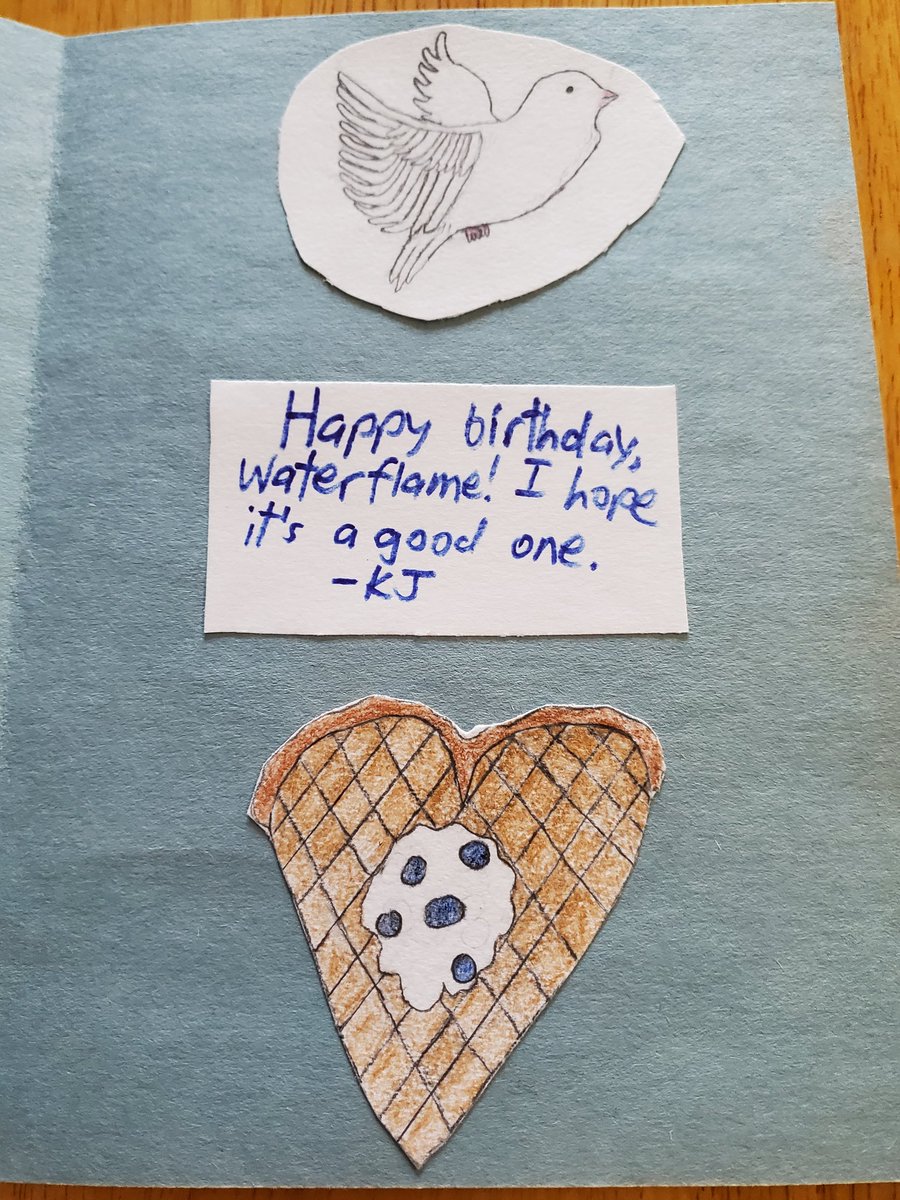 Happy birthday,
Waterflame! I hope
it's a good one.
-KJ